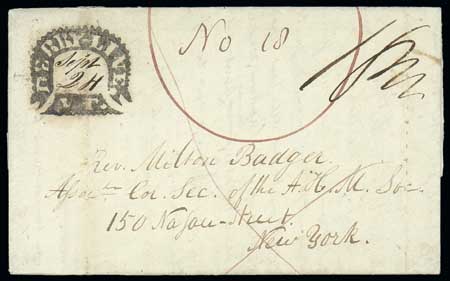 DERBY LINE
Sept
24
V.T.
No 18
Rev. Milton Badger.
Cor. Sec. of the A. H. M. Soc.
150 Nasau-Street.
New York.